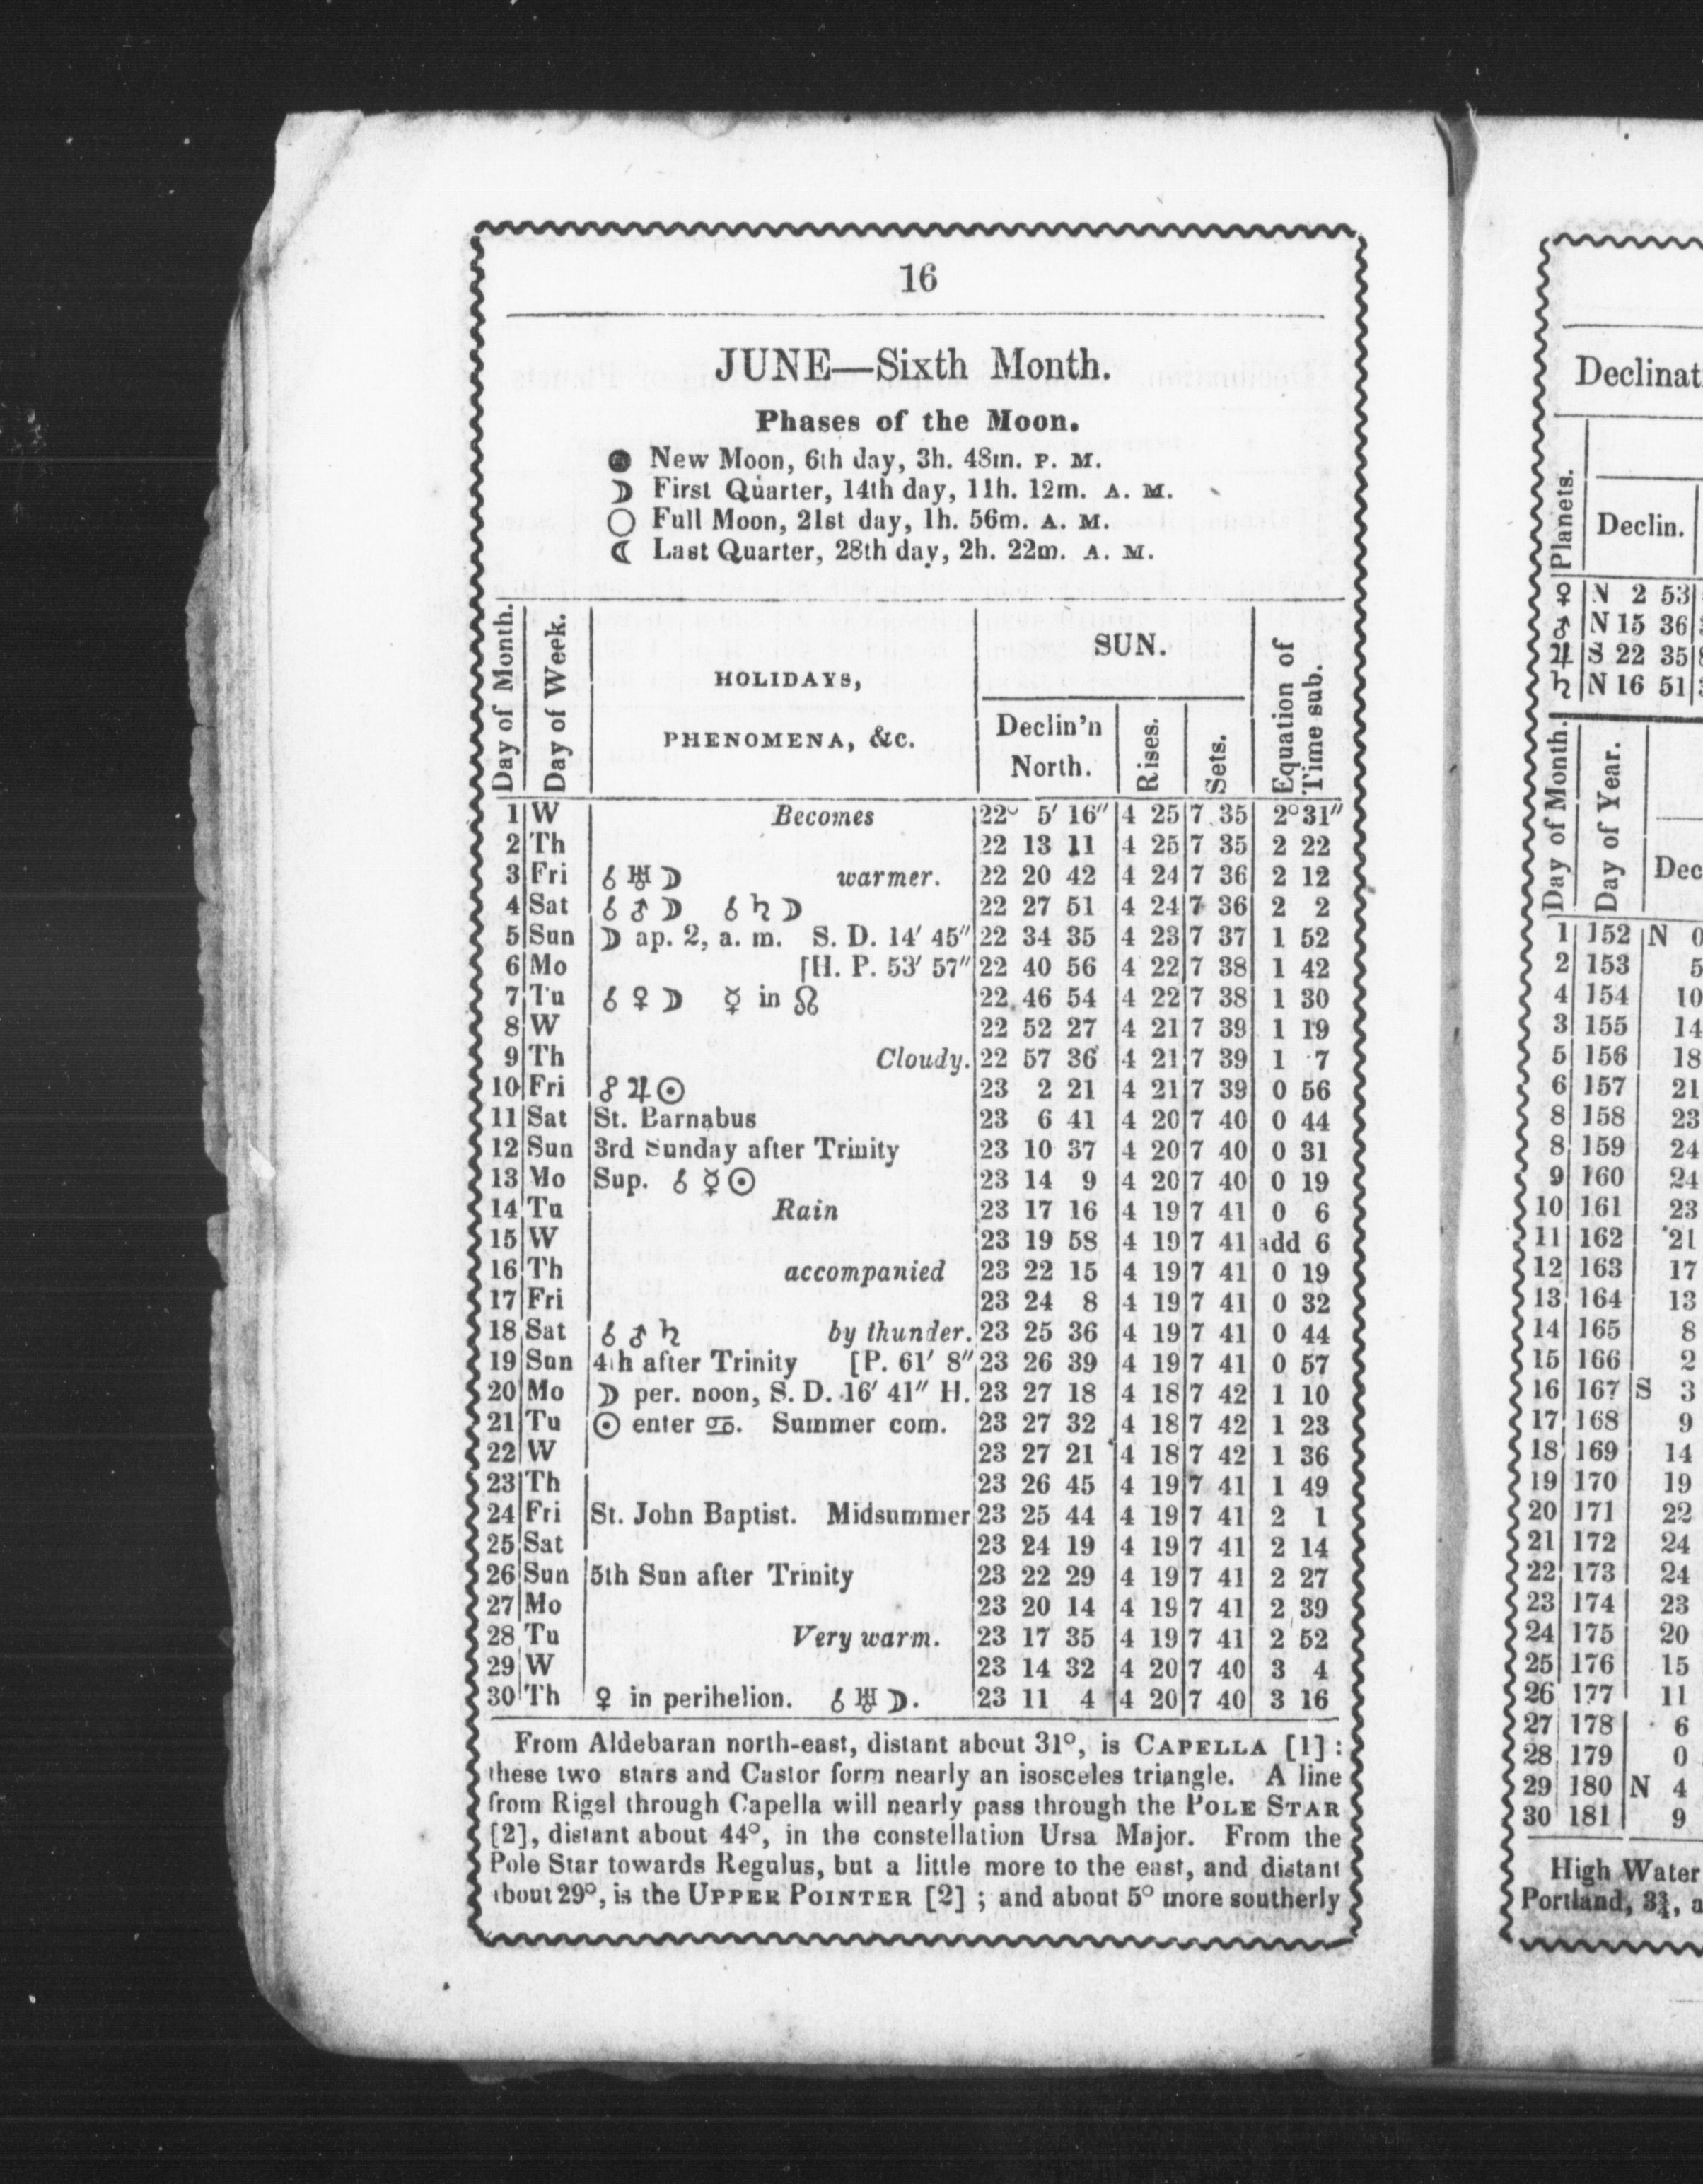 16
JUNE—Sixth Month.
Phases of the Moon.
● New Moon, 6th day, 3h. 48m. P. M.
☽ First Quarter, 14th day, 11h. 12m. A. M.
○ Full Moon, 21st day, 1h. 56m. A. M.
☾ Last Quarter, 28th day, 2h. 22m. A. M.
Day of Month. Day of Week. HOLIDAYS, PHENOMENA, &c. SUN. Declin'n North. Rises. Sets. Equation of Time sub.
1 W Becomes 22° 5′ 16″ 4 25 7 35 2°31″
2 Th 22 13 11 4 25 7 35 2 22
3 Fri ☌ ♅ ☽ warmer. 22 20 42 4 24 7 36 2 12
4 Sat ☌ ♂ ☽ ☌ ♄ ☽ 22 27 51 4 24 7 36 2 2
5 Sun ☽ ap. 2, a. m. S. D. 14′ 45″ 22 34 35 4 23 7 37 1 52
6 Mo [H. P. 53′ 57″ 22 40 56 4 22 7 38 1 42
7 Tu ☌ ♀ ☽ ☿ in ☊ 22 46 54 4 22 7 38 1 30
8 W 22 52 27 4 21 7 39 1 19
9 Th Cloudy. 22 57 36 4 21 7 39 1 7
10 Fri ☍ ♃ ☉ 23 2 21 4 21 7 39 0 56
11 Sat St. Barnabus 23 6 41 4 20 7 40 0 44
12 Sun 3rd Sunday after Trinity 23 10 37 4 20 7 40 0 31
13 Mo Sup. ☌ ☿ ☉ 23 14 9 4 20 7 40 0 19
14 Tu Rain 23 17 16 4 19 7 41 0 6
15 W 23 19 58 4 19 7 41 add 6
16 Th accompanied 23 22 15 4 19 7 41 0 19
17 Fri 23 24 8 4 19 7 41 0 32
18 Sat ☌ ♂ ♄ by thunder. 23 25 36 4 19 7 41 0 44
19 Sun 4th after Trinity [P. 61′ 8″ 23 26 39 4 19 7 41 0 57
20 Mo ☽ per. noon, S. D. 16′ 41″ H. 23 27 18 4 18 7 42 1 10
21 Tu ☉ enter ♋. Summer com. 23 27 32 4 18 7 42 1 23
22 W 23 27 21 4 18 7 42 1 36
23 Th 23 26 45 4 19 7 41 1 49
24 Fri St. John Baptist. Midsummer 23 25 44 4 19 7 41 2 1
25 Sat 23 24 19 4 19 7 41 2 14
26 Sun 5th Sun after Trinity 23 22 29 4 19 7 41 2 27
27 Mo 23 20 14 4 19 7 41 2 39
28 Tu Very warm. 23 17 35 4 19 7 41 2 52
29 W 23 14 32 4 20 7 40 3 4
30 Th ♀ in perihelion. ☌ ♅ ☽. 23 11 4 4 20 7 40 3 16
From Aldebaran north-east, distant about 31°, is CAPELLA [1]:
these two stars and Castor form nearly an isosceles triangle. A line
from Rigel through Capella will nearly pass through the POLE STAR
[2], distant about 44°, in the constellation Ursa Major. From the
Pole Star towards Regulus, but a little more to the east, and distant
about 29°, is the UPPER POINTER [2]; and about 5° more southerly
Declinat
Planets. Declin.
♀ N 2 53
♂ N 15 36
♃ S 22 35
♄ N 16 51
Day of Month. Day of Year. Dec
1 152 N 0
2 153 5
4 154 10
3 155 14
5 156 18
6 157 21
8 158 23
8 159 24
9 160 24
10 161 23
11 162 21
12 163 17
13 164 13
14 165 8
15 166 2
16 167 S 3
17 168 9
18 169 14
19 170 19
20 171 22
21 172 24
22 173 24
23 174 23
24 175 20
25 176 15
26 177 11
27 178 6
28 179 0
29 180 N 4
30 181 9
High Water
Portland, 3¾, a